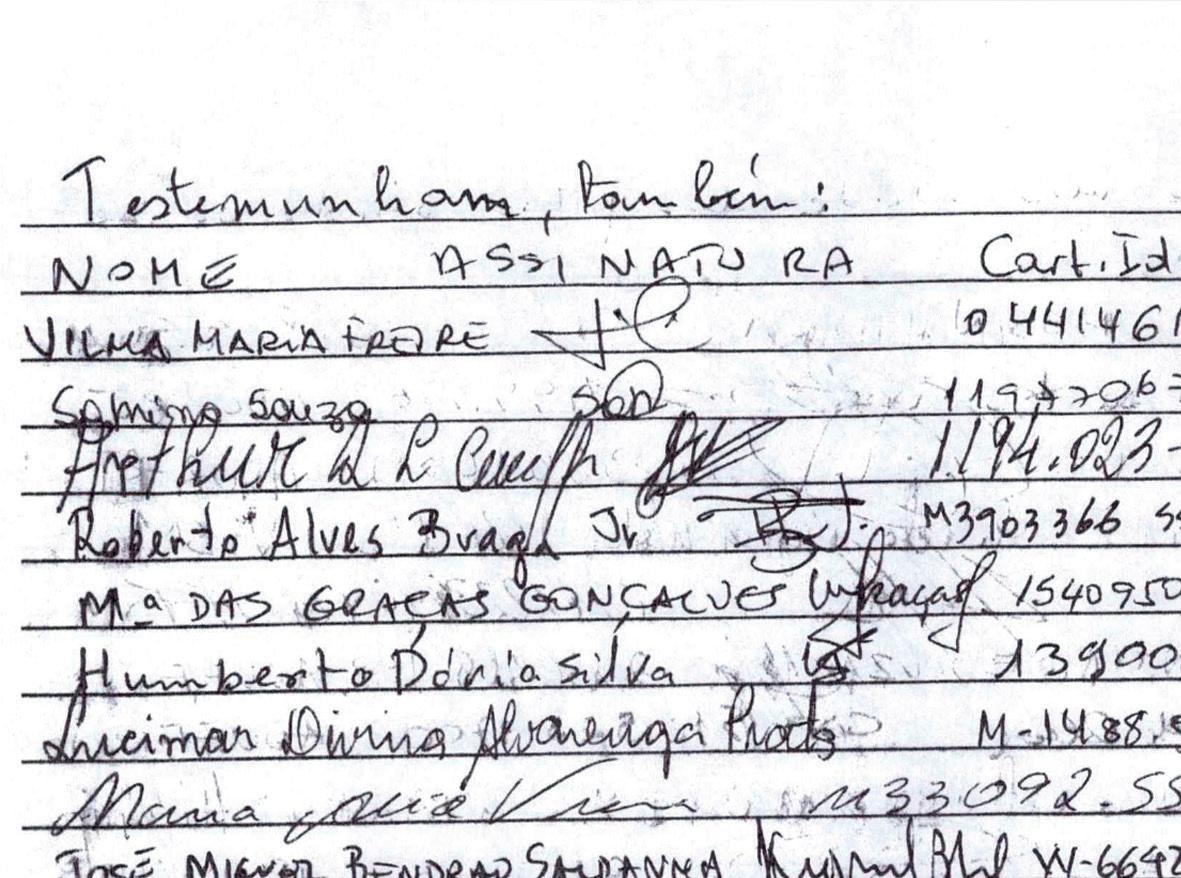 Testemunham, também:
NOME ASSINATURA Cart. Id
VILMA MARIA FREIRE 0441461
Samira Souza 11977067
Arthur 1.194.023-
Roberto Alves Braga Jr M3903366 SS
Mª DAS GRAÇAS GONÇALVES 1540950
Humberto Dória Silva 13900
Lucimar Divina Alvarenga Prata M-1488.
Maria M33092.SS
JOSÉ MIGUEL SALDANHA M-6642